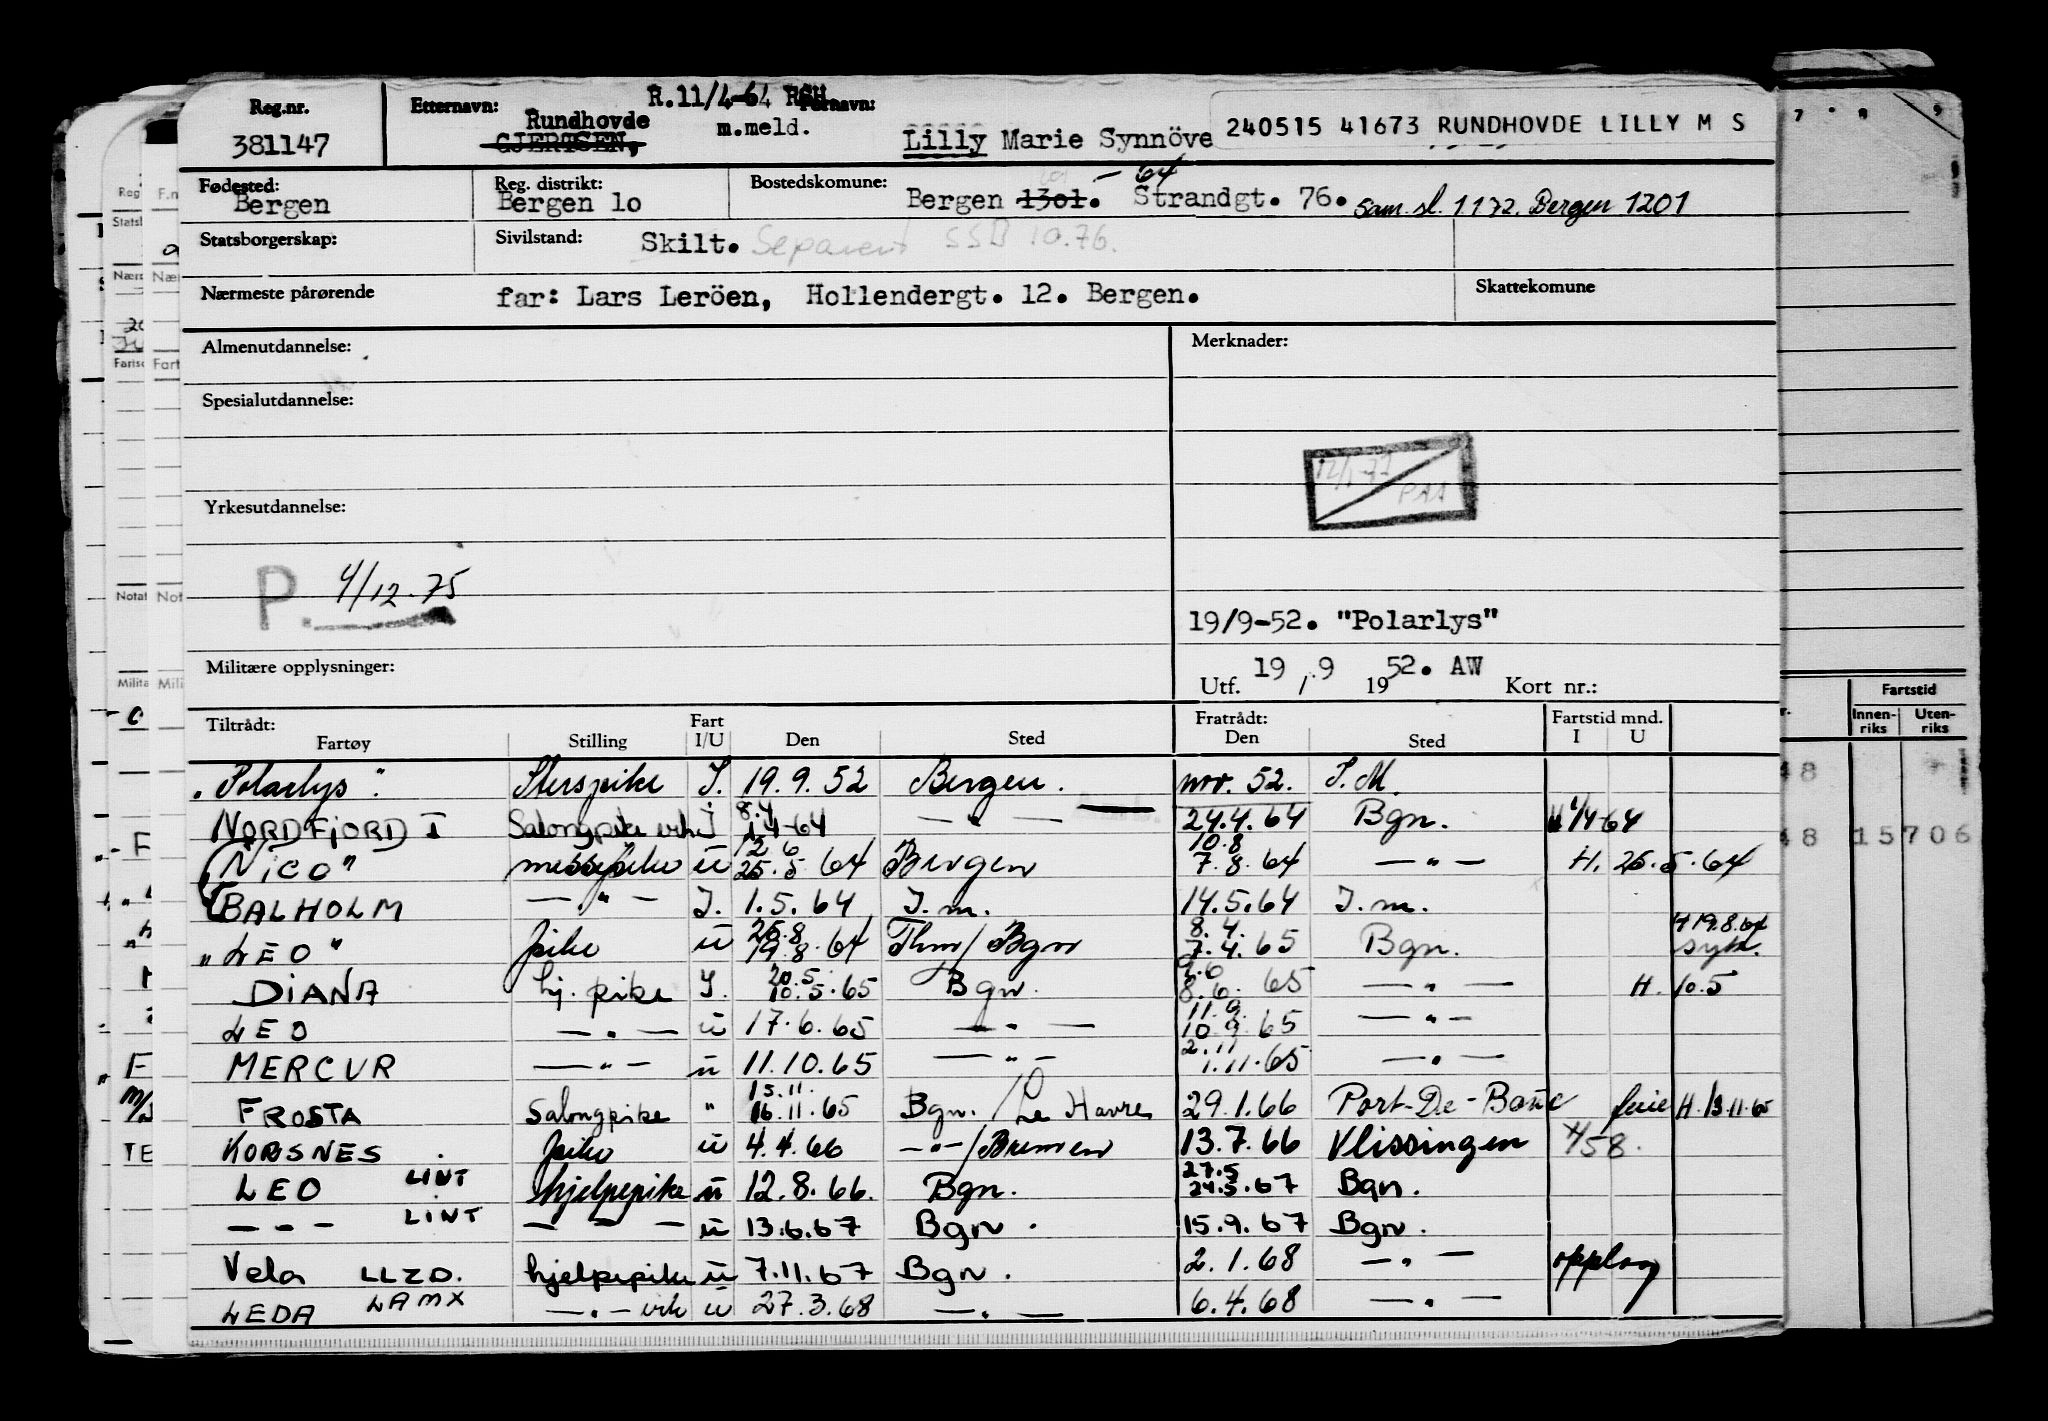 Reg.nr. Etternavn: R.11/4-64 Fornavn:
381147 Rundhovde m.meld.
GJERTSEN, Lilly Marie Synnöve 240515 41673 RUNDHOVDE LILLY M S
Fødested: Reg. distrikt: Bostedskomune:
Bergen Bergen lo Bergen 1301. - 64 Strandgt. 76. Sam. sl. 1172. Bergen 1201
Statsborgerskap: Sivilstand: Skilt. Separert SSB 10.76.
Nærmeste pårørende far: Lars Leröen, Hollendergt. 12. Bergen. Skattekomune
Almenutdannelse: Merknader:
Spesialutdannelse:
12/1-77
Yrkesutdannelse:
P. 4/12-75
19/9-52. "Polarlys"
Militære opplysninger: Utf. 19 / 9 1952. AW Kort nr.:
Tiltrådt: Fart Fratrådt: Fartstid mnd.
Fartøy Stilling I/U Den Sted Den Sted I U
"Polarlys" I. 19.9.52 Bergen. nov. 52. I.M.
NORDFJORD I Salongpike vik I 8.4 14-64 — " — 24.4.64 Bgn. 1/4-64
"NICO" messepike u 12.6 25.5.64 Bergen 10.8 7.8.64 — " — H. 26.5.64
BALHOLM — " — I. 1.5.64 I.m. 14.5.64 I.m.
"LEO" pike u 19.8.64 Thm/Bgn 8.4. 7.4.65 Bgn. H 19.8.64 syk.
DIANA hj. pike I. 20.5. 10.5.65 Bgn. 9.6 8.6.65 — " — H. 10.5
LEO — " — u 17.6.65 — " — 11.9. 10.9.65 — " —
MERCUR — " — u 11.10.65 — " — 2.11 1.11.65 — " —
FROSTA Salongpike " 15.11. 16.11.65 Bgn. / Le Havre 29.1.66 Port-De-Bouc ferie H. 13.11.65
KORSNES pike u 4.4.66 — " — / Bremen 13.7.66 Vlissingen 4/58.
LEO LINT hjelpepike u 12.8.66. Bgn. 27.5 24.5.67 Bgn.
— " — LINT — " — u 13.6.67 Bgn. 15.9.67 Bgn.
Vela LLZD. hjelpepike u 7.11.67 Bgn. 2.1.68 — " — opplag
LEDA LAMX — " — vik u 27.3.68 — " — 6.4.68 — " —
Fartstid
Innen-riks Uten-riks
48
48 15706